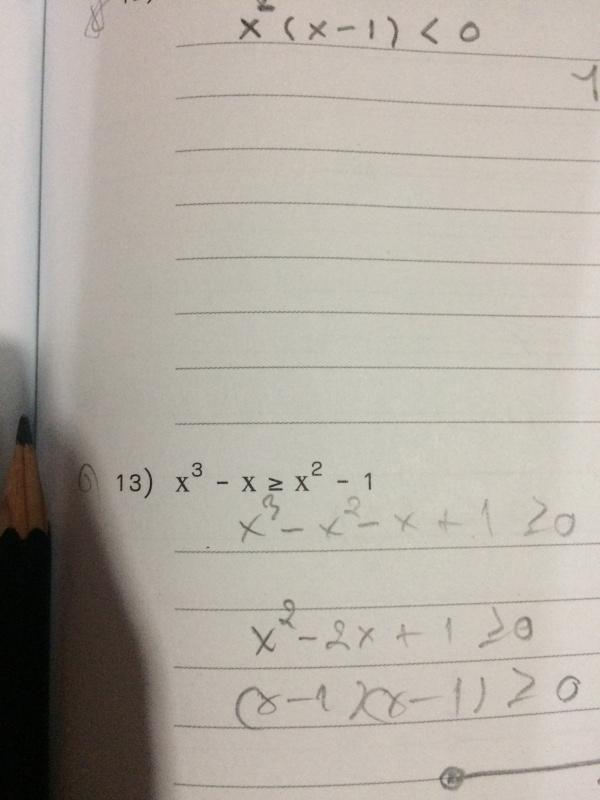 x²(x-1) < 0
13) x³ - x ≥ x² - 1
x³ - x² - x + 1 ≥ 0
x² - 2x + 1 ≥ 0
(x-1)(x-1) ≥ 0